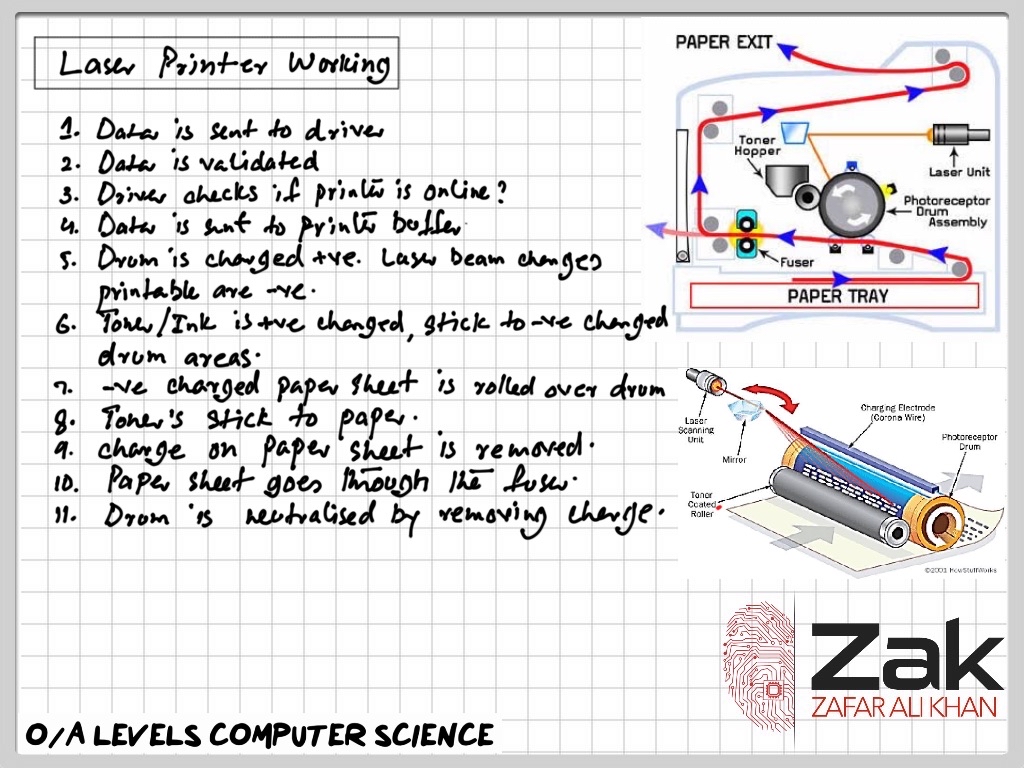 Laser Printer Working
1. Data is sent to driver
2. Data is validated
3. Driver checks if printer is online?
4. Data is sent to printer buffer.
5. Drum is charged +ve. Laser beam changes
printable are -ve.
6. Toner/Ink is +ve charged, stick to -ve charged
drum areas.
7. -ve charged paper sheet is rolled over drum
8. Toner's stick to paper.
9. charge on paper sheet is removed.
10. Paper sheet goes through the fuser.
11. Drum is neutralised by removing charge.
PAPER EXIT
Toner
Hopper
Laser Unit
Photoreceptor
Drum
Assembly
Fuser
PAPER TRAY
Laser
Scanning
Unit
Mirror
Charging Electrode
(Corona Wire)
Photoreceptor
Drum
Toner
Coated
Roller
©2001 HowStuffWorks
Zak
ZAFAR ALI KHAN
O/A LEVELS COMPUTER SCIENCE